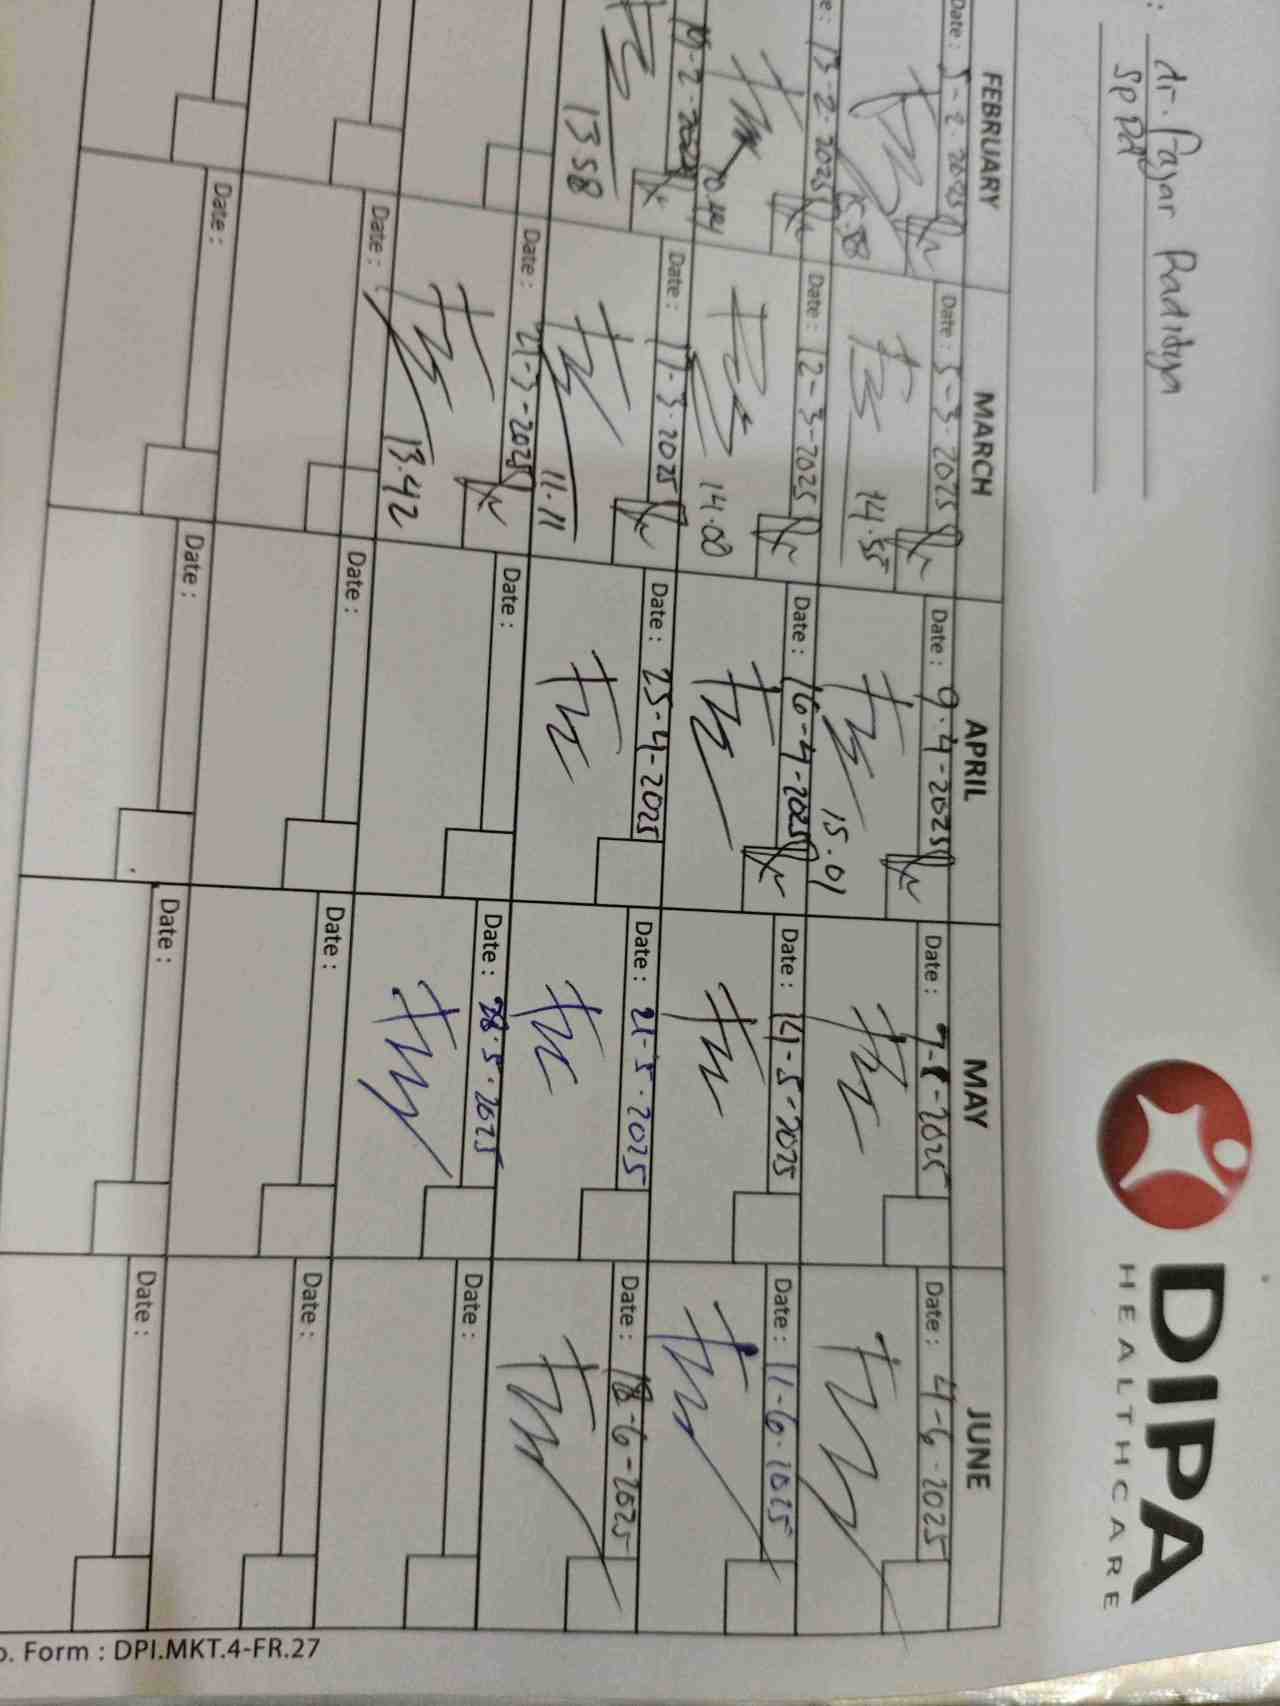 : dr. Fajar Raditya
Sp Pd
DIPA
HEALTHCARE
FEBRUARY MARCH APRIL MAY JUNE
Date : 5-2-2025 Date : 5-3-2025 Date : 9-4-2025 Date : 7-5-2025 Date : 4-6-2025
15.58 14.55 15.01
e : 13-2-2025 Date : 12-3-2025 Date : 16-4-2025 Date : 14-5-2025 Date : 11-6-2025
14.00
19-2-2025 Date : 17-3-2025 Date : 25-4-2025 Date : 21-5-2025 Date : 18-6-2025
13 58 11.11
Date : 21-3-2025 Date : Date : 28-5-2025 Date :
13.42
Date : Date : Date : Date :
Date : Date : Date : Date :
o. Form : DPI.MKT.4-FR.27